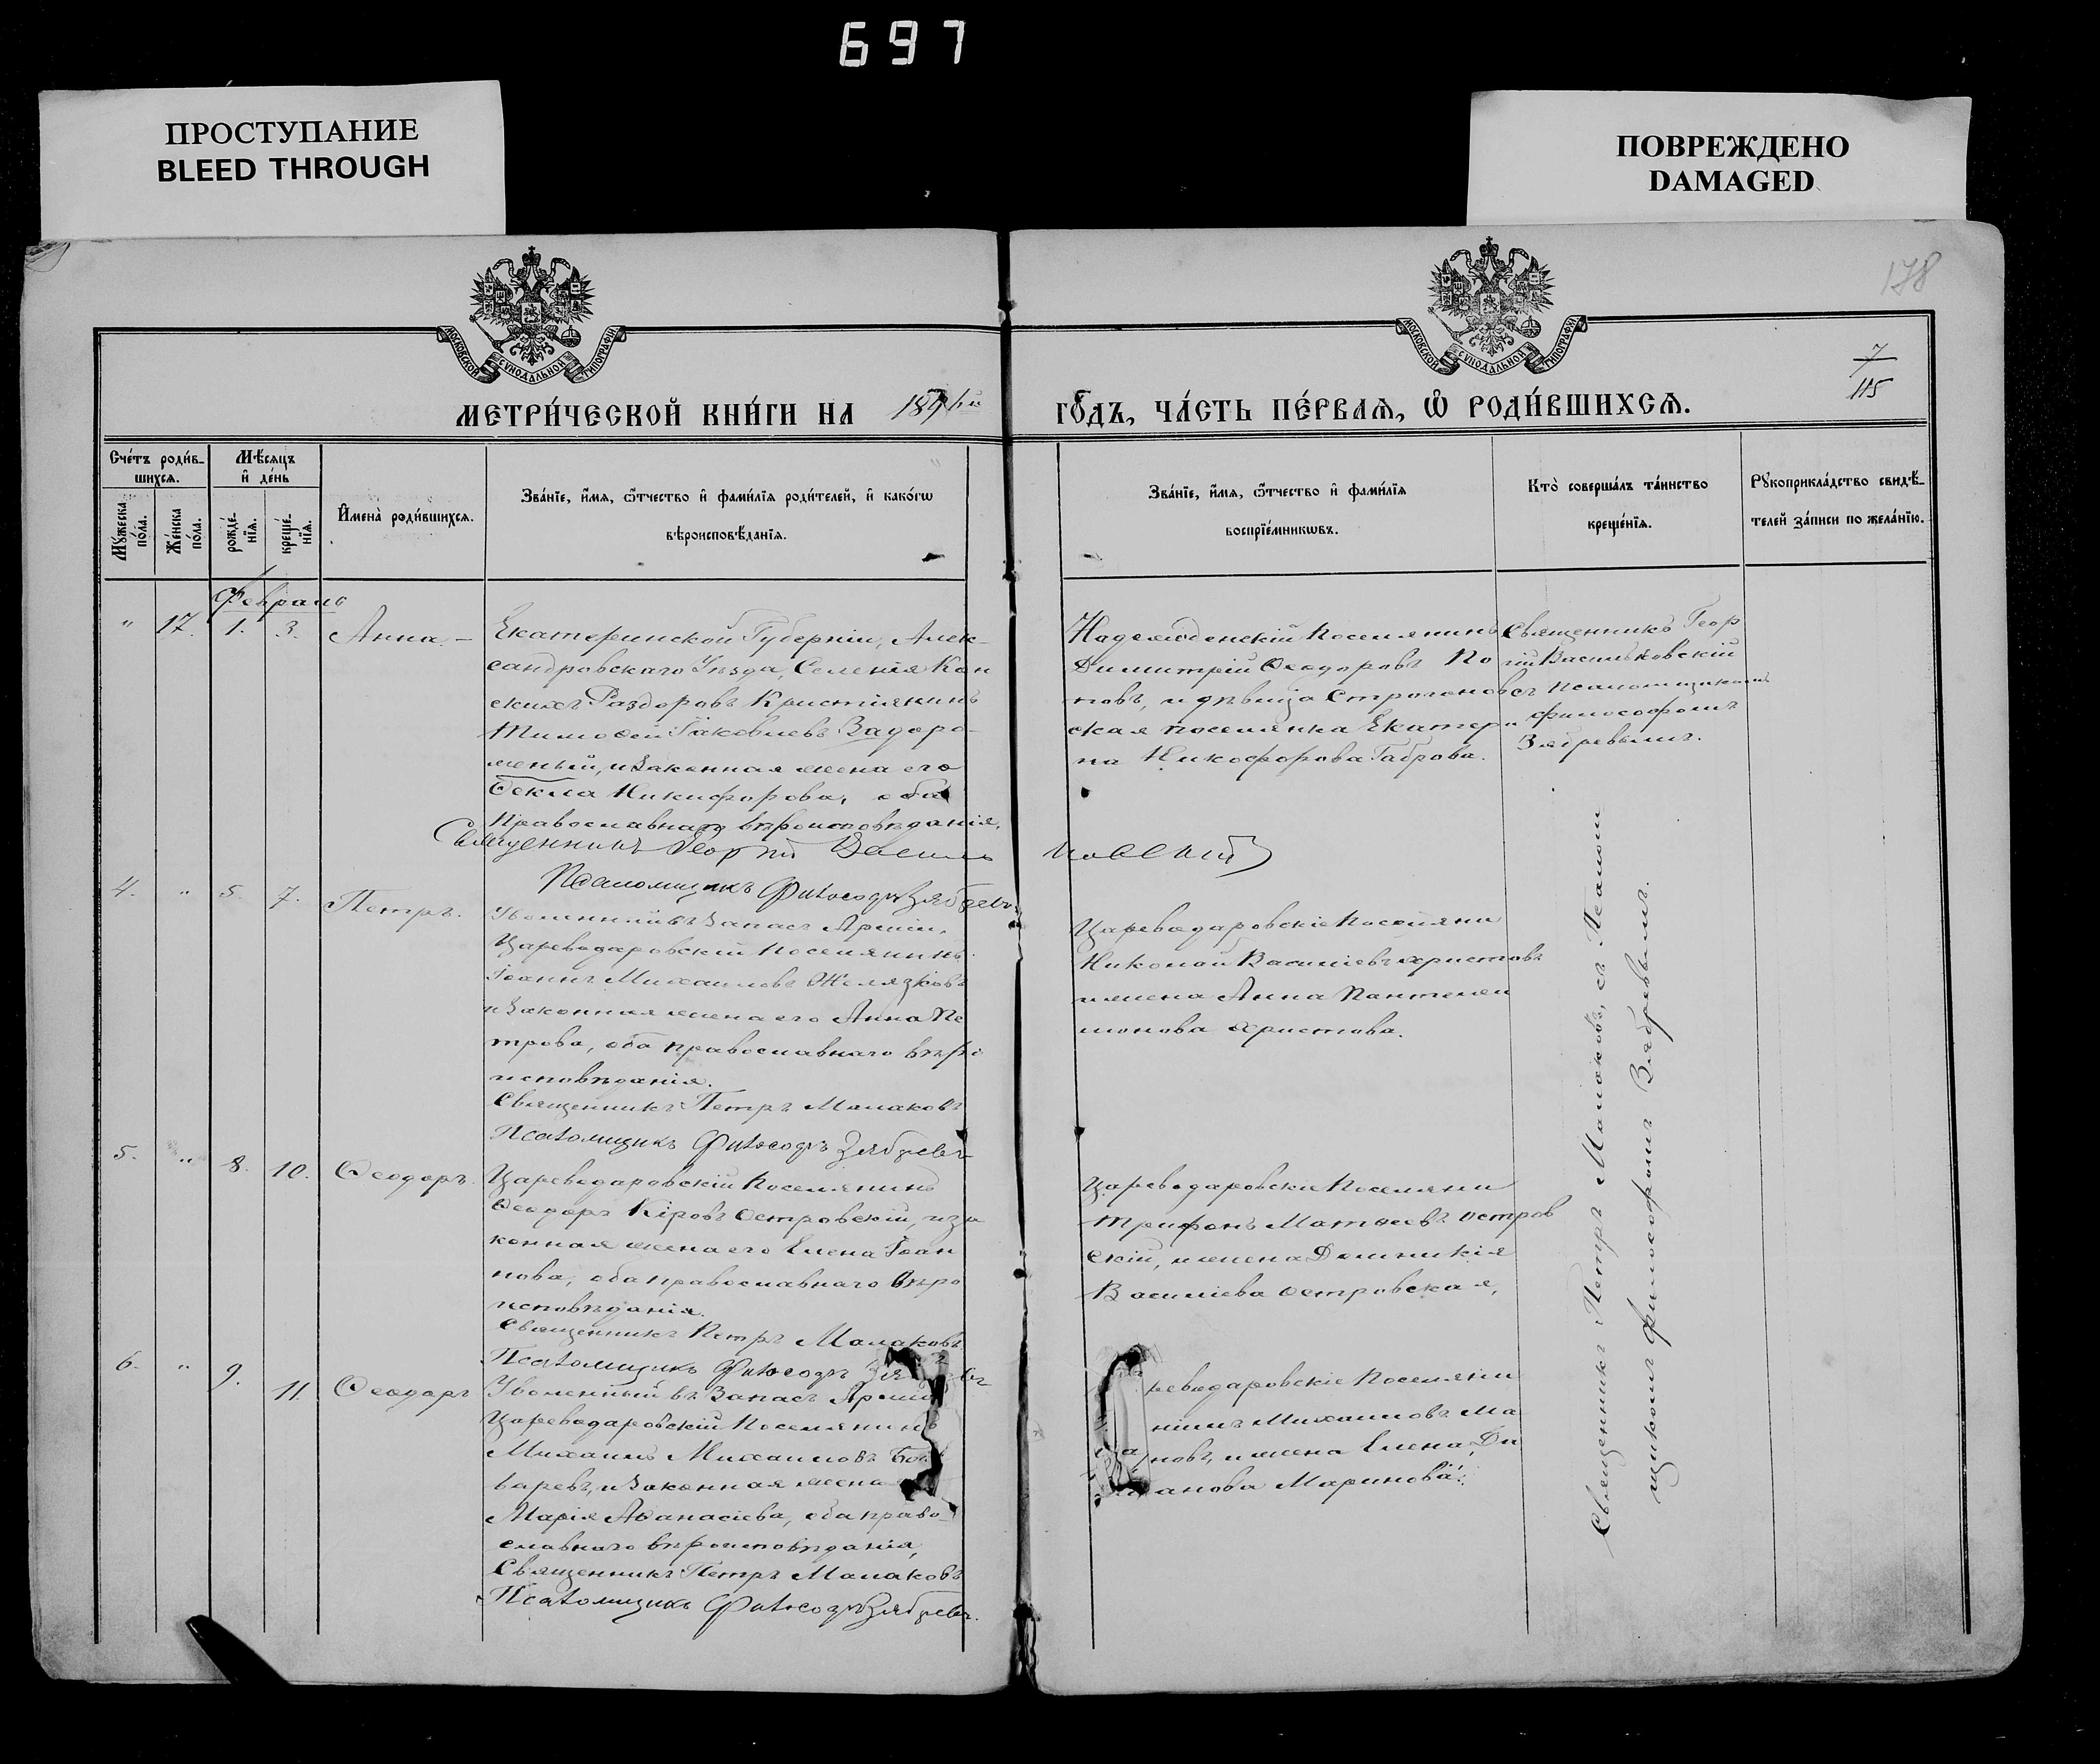 697
ПРОСТУПАНИЕ
BLEED THROUGH
ПОВРЕЖДЕНО
DAMAGED
178
МОСКОВСКОЙ СУНОДАЛЬНОЙ ТИПОГРАФІИ
МОСКОВСКОЙ СУНОДАЛЬНОЙ ТИПОГРАФІИ
7
115
МЕТРИ́ЧЕСКОЙ КНИ́ГИ НА
ГО́ДЪ, ЧА́СТЬ ПЕ́РВАѦ, Ѽ РОДИ́ВШИХСѦ.
Сче́тъ роди́в-
шихсѧ.
Мѣ́сѧцъ
и҆ де́нь
Мꙋ́жеска
по́ла.
Же́нска
по́ла.
рожде́-
нїѧ.
креще́-
нїѧ.
И҆мена̀ роди́вшихсѧ.
Зва́нїе, и҆́мѧ, ѻ҆́тчество и҆ фамѵ́лїѧ роди́телей, и҆ како́гѡ
вѣроисповѣ́данїѧ.
Зва́нїе, и҆́мѧ, ѻ҆́тчество и҆ фамѵ́лїѧ
воспрїе́мникѡвъ.
Кто̀ соверша́лъ та́инство
креще́нїѧ.
Рꙋкоприкла́дство свидѣ́-
телей за́писи по жела́нїю.
Февраль
" 17. 1. 3. Анна. –
Екатеринской Губерніи, Алек-
сандровскаго Уѣзда, Селенія Кон
скихъ Раздоровъ Кристіянинъ
Тимоѳей Іаковлевъ Задоро-
жный, и законная жена его
Ѳекла Никифорова, оба
Православнаго вѣроисповѣданія.
Священникъ Георгій Василь
ковскій
Псаломщикъ Философъ Зябревъ.
Димитрій Ѳеодоровъ По
повъ, и дѣвица Строганов
ская поселянка Екатери
на Никифорова Габрова.
Священникъ Геор
гій Васильковскій
съ псаломщикомъ
Философомъ
Зябревымъ.
4. " 5. 7. Петръ.
Уволенный въ Запасъ Арміи,
Цареводаровскій Поселянинъ
Іоаннъ Михаиловъ Желязковъ
и законная жена его Анна Пе
трова, оба православнаго вѣро
исповѣданія.
Священникъ Петръ Малаковъ
Псаломщикъ Философъ Зябревъ
Цареводаровскіе Поселяни
Николай Василіевъ Христовъ
и жена Анна Пантелеи
монова Христова.
5. " 8. 10. Ѳеодоръ.
Цареводаровскій Поселянинъ
Ѳеодоръ Кіровъ Островскій, и за
конная жена его Елена Іоан
нова, оба православнаго вѣро
исповѣданія.
Священникъ Петръ Малаковъ
Псаломщикъ Философъ
Цареводаровскіе Поселяни
Трифонъ Матѳеевъ Остров
скій, и жена Домникія
Василіева Островская,
6. " 9. 11. Ѳеодоръ
Уволенный въ Запасъ Арміи
Цареводаровскій Поселянинъ
Михаилъ Михаиловъ
варевъ, и законная жена
Марія Аѳанасіева, оба право-
славнаго вѣроисповѣданія,
Священникъ Петръ Малаковъ
Псаломщикъ Философъ Зябревъ.
реводаровскіе Поселяни
Михаиловъ Ма
новъ, и жена Елена Ди
анова Маринова.
Священникъ Петръ Малаковъ, съ Псалом
щикомъ Философомъ Зябревымъ.